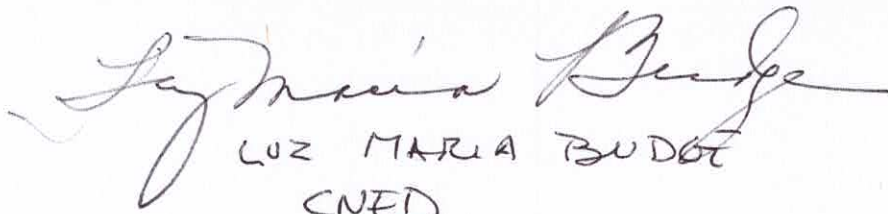 Luz Maria Budge
LUZ MARIA BUDGE
CNED